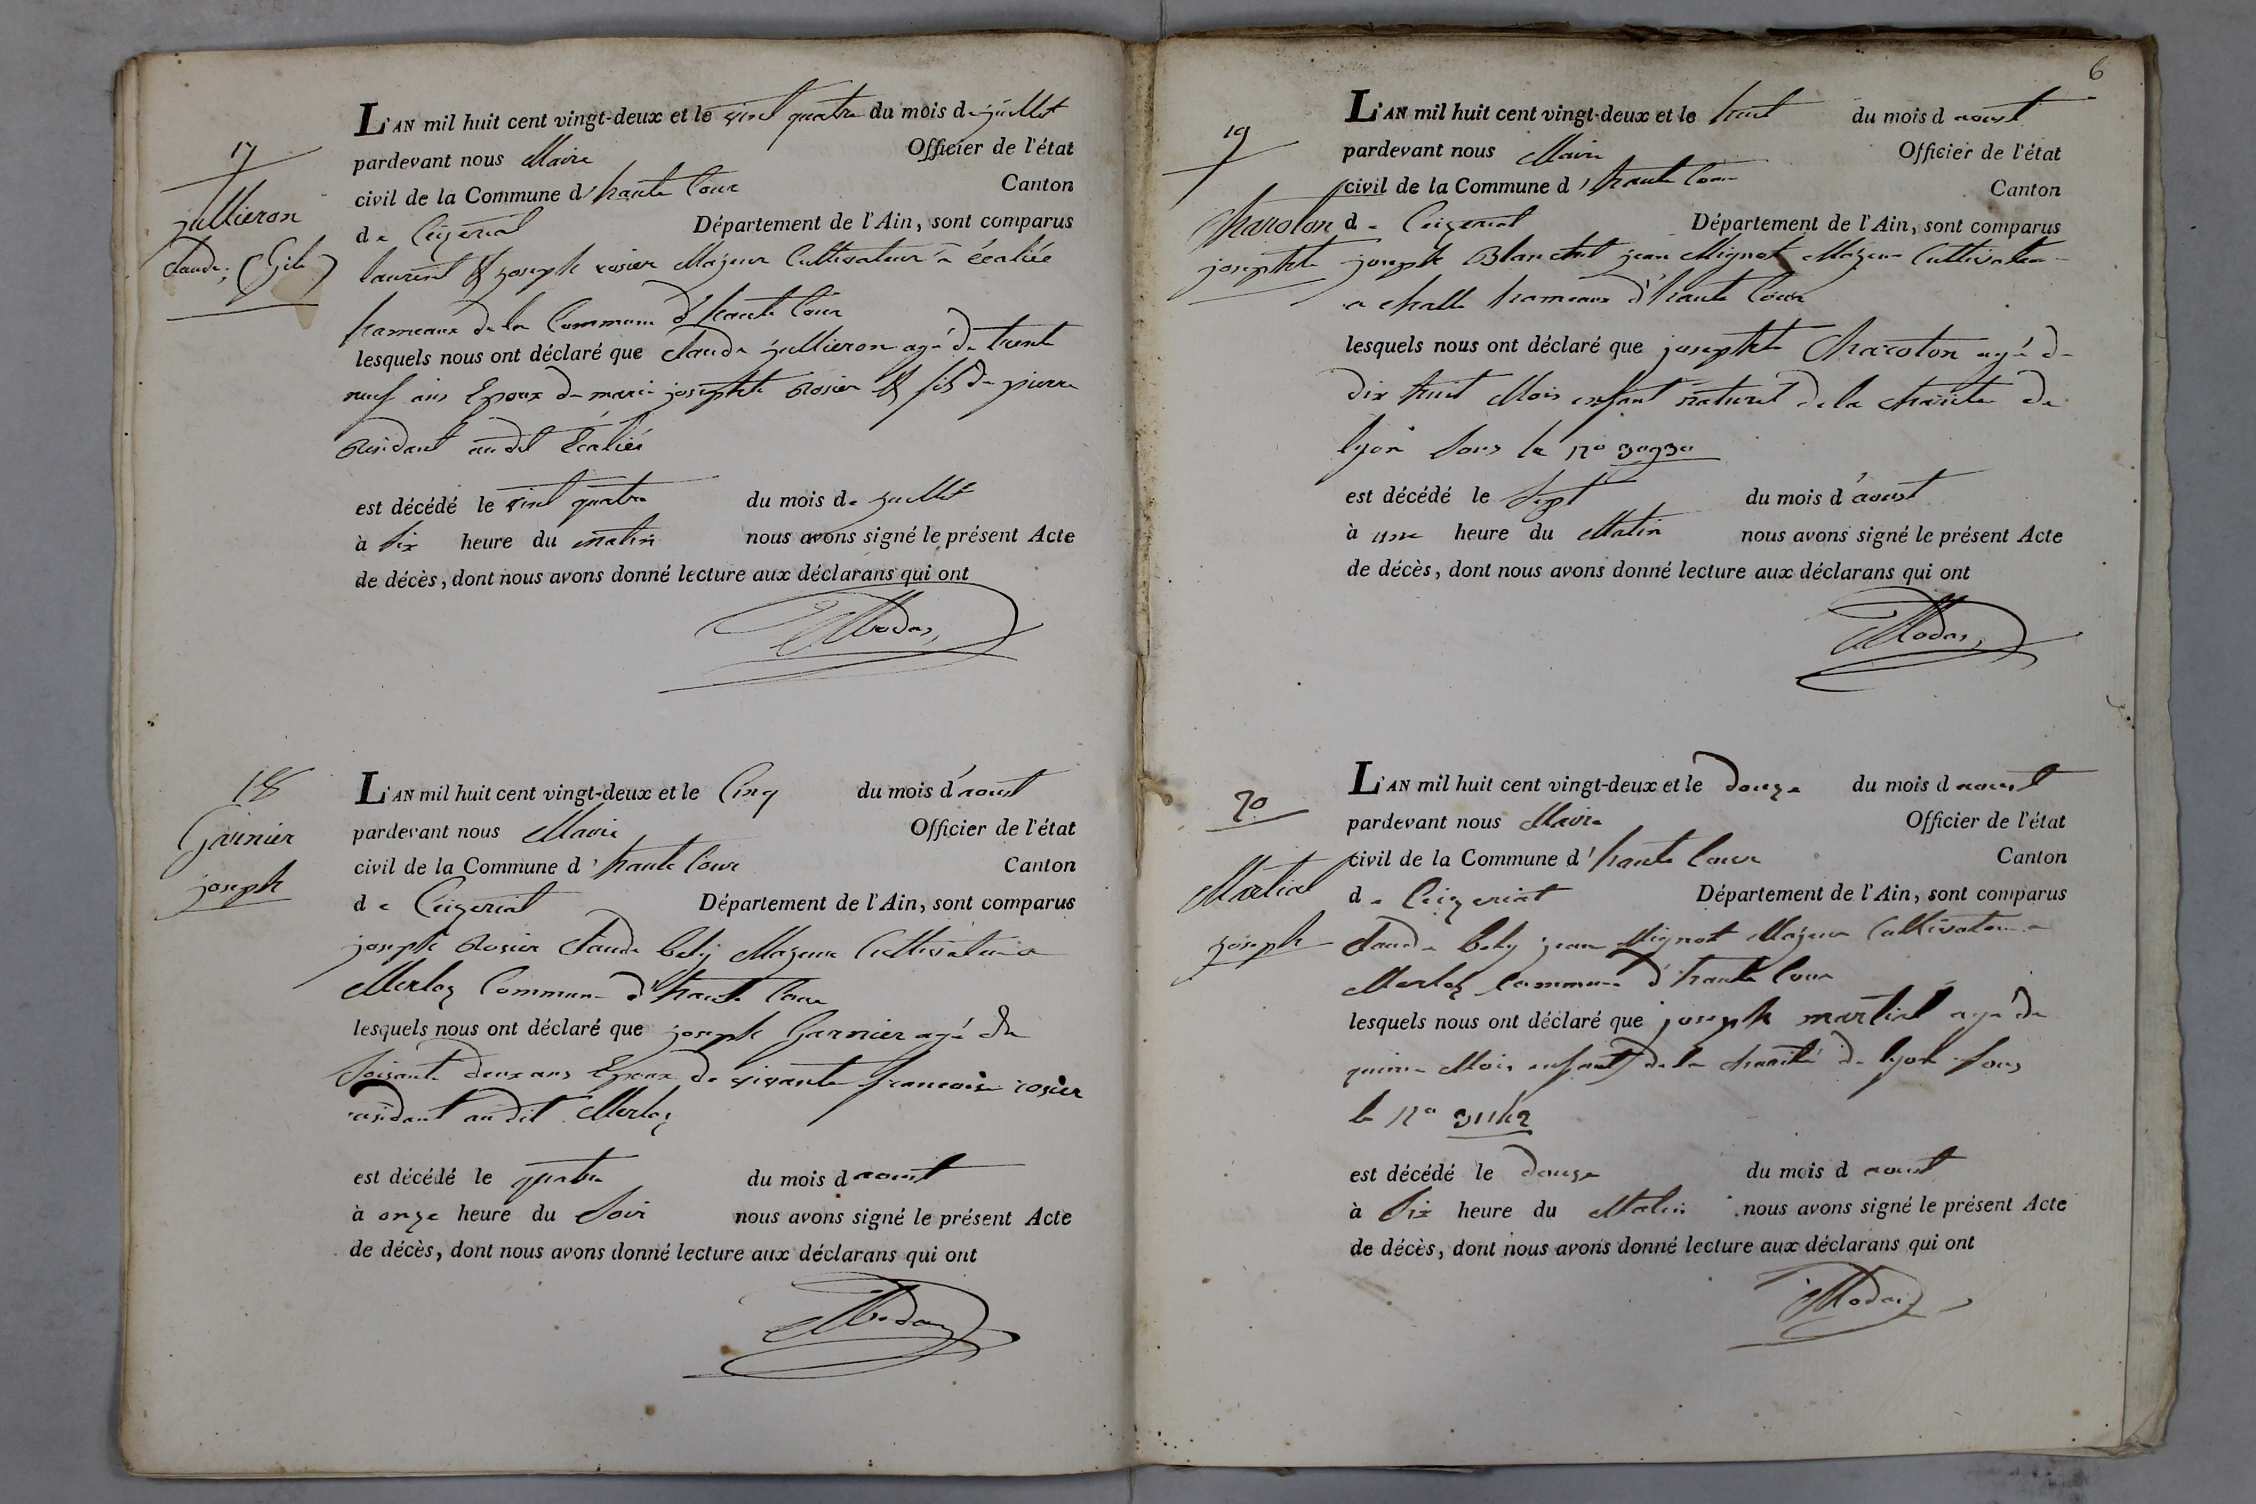 17
jullieron
Claude,
L'AN mil huit cent vingt-deux et le vint quatre du mois de juillet
pardevant nous Maire Officier de l'état
civil de la Commune d'haute Cour Canton
de Ceizeriat Département de l'Ain, sont comparus
laurent & joseph rosier Majeur Cultivateur a
hameaux de la Commune d'haute Cour
lesquels nous ont déclaré que claude jullieron agé de trente
neuf ans Epoux de marie josephte Rosier & fils de pierre
Résidant au dit
est décédé le vint quatre du mois de juillet
à Six heure du matin nous avons signé le présent Acte
de décès, dont nous avons donné lecture aux déclarans qui ont
18
Garnier
joseph
L'AN mil huit cent vingt-deux et le Cinq du mois d'aoust
pardevant nous Maire Officier de l'état
civil de la Commune d'haute Cour Canton
de Ceizeriat Département de l'Ain, sont comparus
joseph Rosier Claude bely Majeur Cultivateur a
Merloz Commune d'haute Cour
lesquels nous ont déclaré que joseph Garnier agé de
Soisante deux ans Epoux de vivante francoise rosier
résidant au dit Merloz
est décédé le quatre du mois d aoust
à onze heure du Soir nous avons signé le présent Acte
de décès, dont nous avons donné lecture aux déclarans qui ont
6
19
Charolon
josephte
L'AN mil huit cent vingt-deux et le huit du mois d aoust
pardevant nous Maire Officier de l'état
civil de la Commune d'haute Cour Canton
de Ceizeriat Département de l'Ain, sont comparus
joseph Blanchet jean Mignot Majeur Cultivateur
a challe hameaux d'haute Cour
lesquels nous ont déclaré que josephte Charolon agé de
dix huit Mois enfant naturel de la charité de
lyon Sous le No
est décédé le Sept du mois d'aoust
à une heure du Matin nous avons signé le présent Acte
de décès, dont nous avons donné lecture aux déclarans qui ont
20
Martial
joseph
L'AN mil huit cent vingt-deux et le douze du mois d aoust
pardevant nous Maire Officier de l'état
civil de la Commune d'haute Cour Canton
de Ceizeriat Département de l'Ain, sont comparus
Claude bely jean Mignot Majeur Cultivateur a
Merloz Commune d'haute Cour
lesquels nous ont déclaré que joseph martial agé de
Mois enfant de la charité de lyon sous
le No
est décédé le douze du mois d aoust
à Six heure du Matin nous avons signé le présent Acte
de décès, dont nous avons donné lecture aux déclarans qui ont